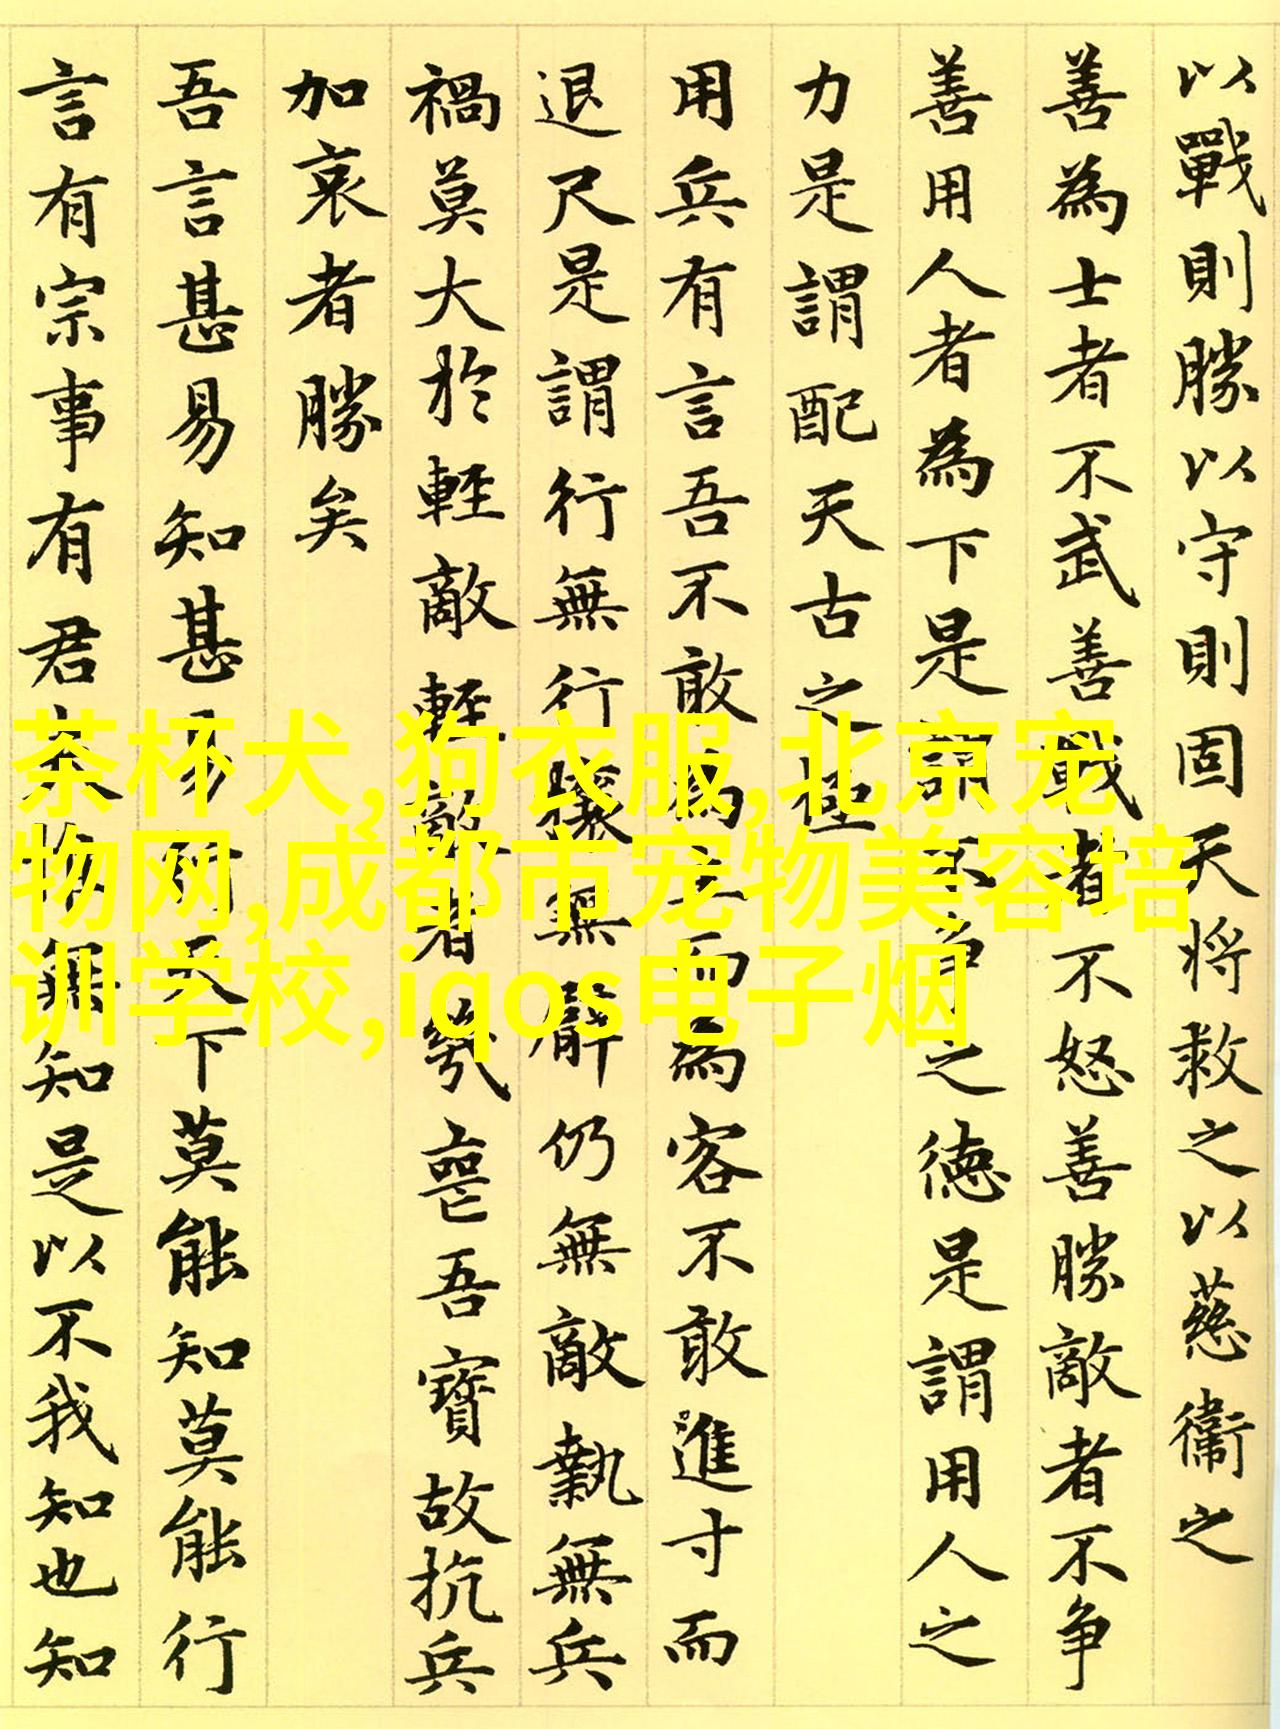 以戰則勝以守則固天将救之以慈衞之
善為士者不武善戰者不怒善勝敵者不争
善用人者為下是謂不争之徳是謂用人之
力是謂配天古之極
用兵有言吾不敢為主而為客不敢進寸而
退尺是謂行無行攘無臂仍無敵執無兵
禍莫大於輕敵輕敵者幾喪吾寶故抗兵
加哀者勝矣
吾言甚易知甚易行天下莫能知莫能行
言有宗事有君夫物無知是以不我知也知
茶杯犬,狗衣服,北京宠
物网,成都市宠物美容培
训学校,iqos电子烟